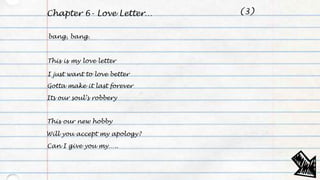 Chapter 6- Love Letter... (3)
bang, bang.
This is my love letter
I just want to love better
Gotta make it last forever
Its our soul's robbery
This our new hobby
Will you accept my apology?
Can I give you my.....